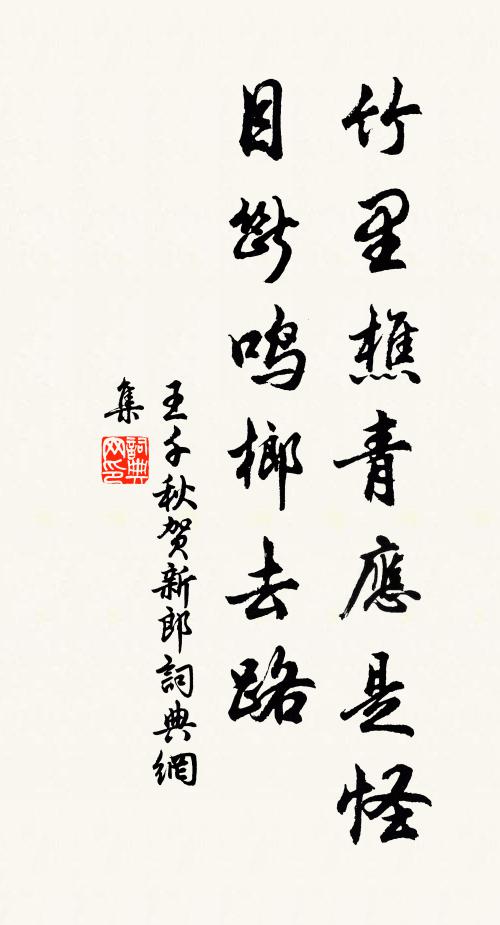 竹里樵青應是怪
目断鸣榔去路
王千秋贺新郎詞典網
集
詞典网印